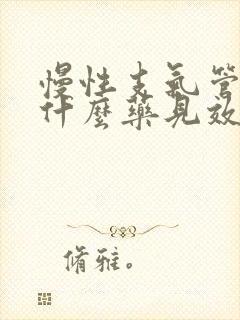 慢性支氣管
什麼藥見效
脩雅。